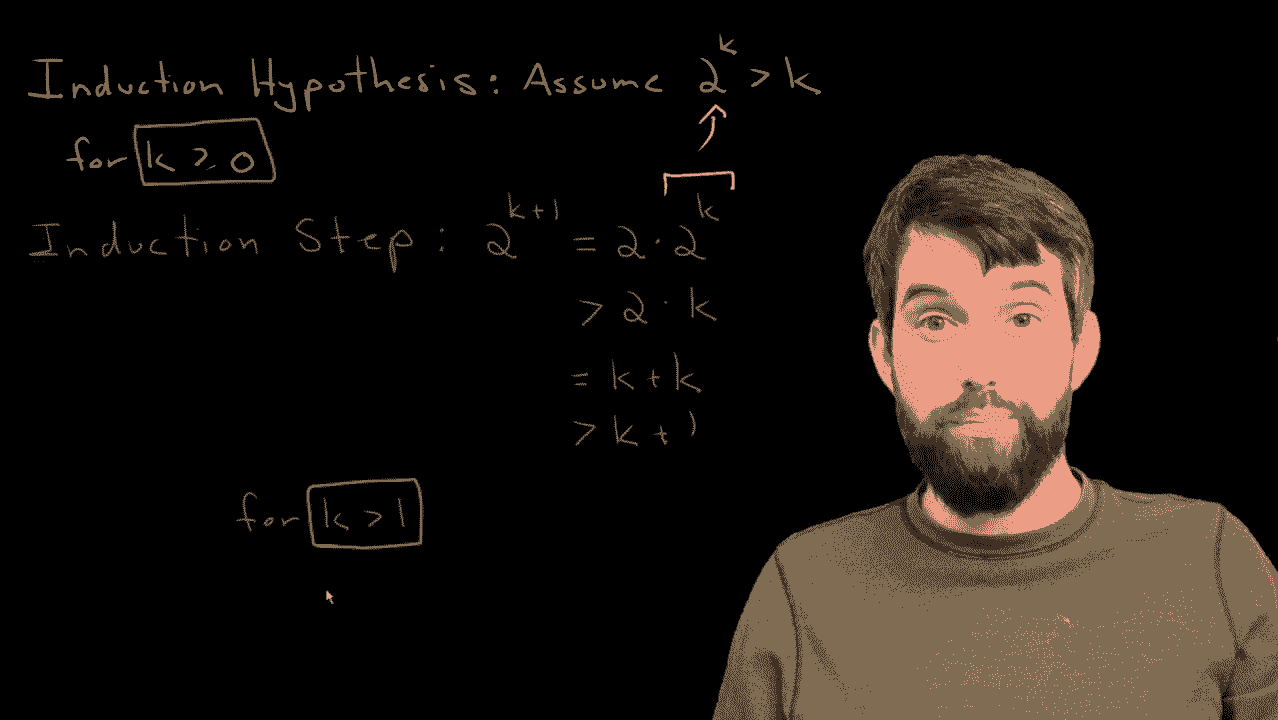 Induction Hypothesis: Assume 2^k > k
for k ≥ 0
Induction Step: 2^{k+1} = 2·2^k
> 2·k
= k + k
> k + 1
for k > 1